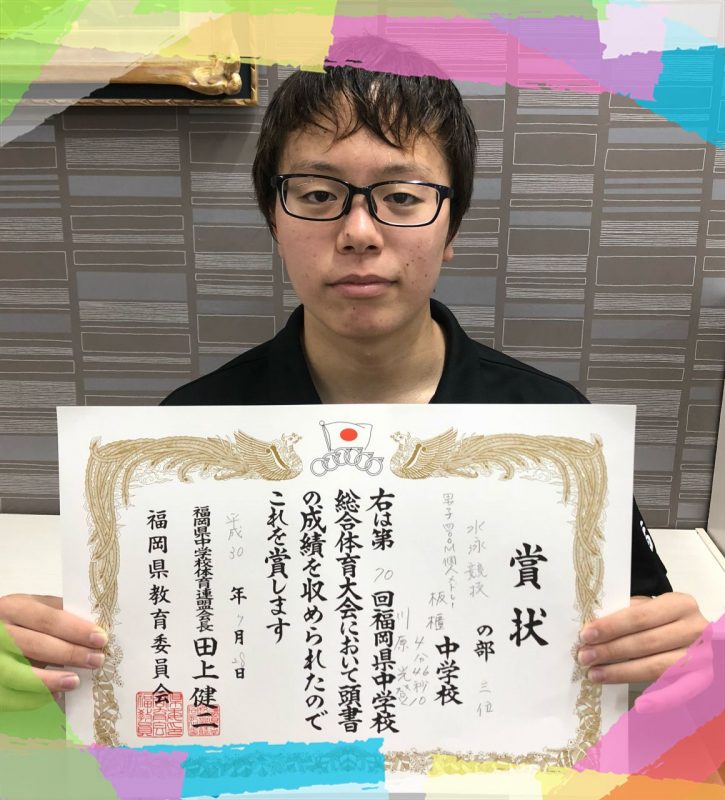 賞状
水泳競技の部 三位
男子400M個人メドレー
4分46秒10
板櫃中学校
川原
右は第70回福岡県中学校
総合体育大会において頭書
の成績を収められたので
これを賞します
平成30年7月28日
福岡県中学校体育連盟会長 田上健二
福岡県教育委員会